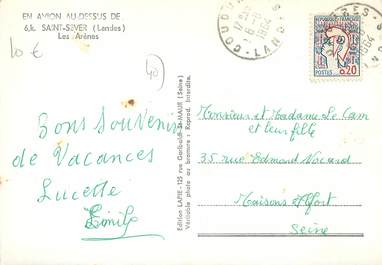 EN AVION AU-DESSUS DE...
6,k. SAINT-SEVER (Landes)
Les Arènes
10 €
40
Bons Souvenirs
de Vacances
Lucette
Emile
Edition LAPIE - 125 rue Garibaldi St-MAUR (Seine)
Véritable photo au bromure : Reprod. Interdite.
1964
LAND
1964
REPUBLIQUE FRANÇAISE
POSTES 0,20
Monsieur et Madame Le Cam
et leur fille
35 rue Edmond Nocard
Maisons Alfort
Seine